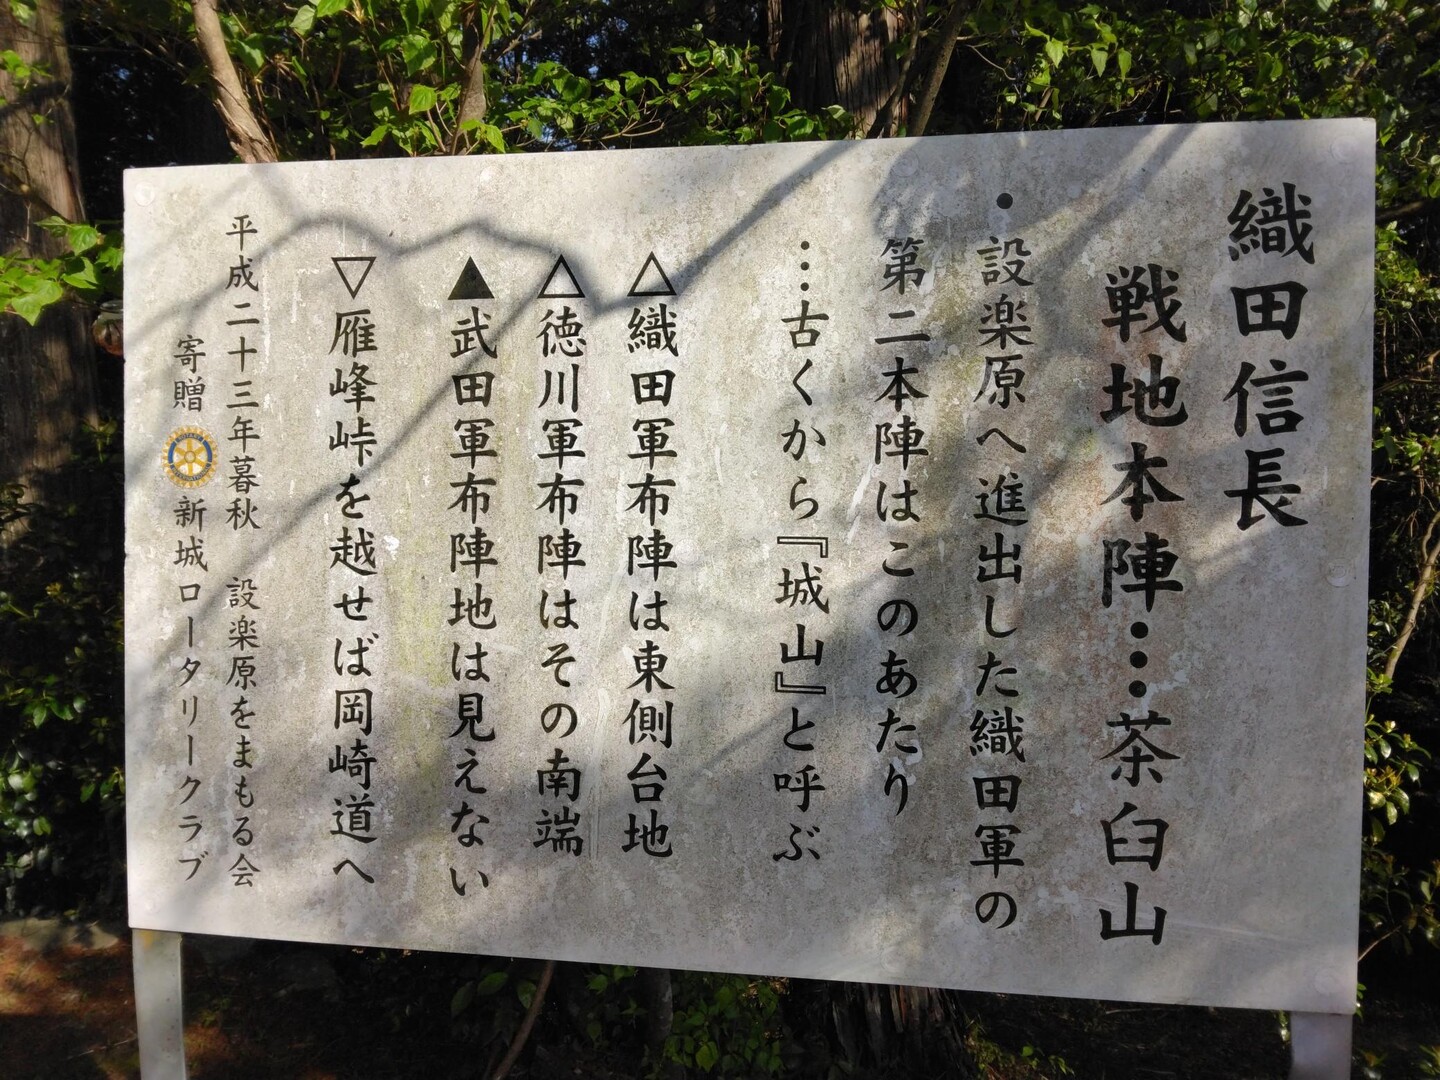 織田信長
戦地本陣…茶臼山
・設楽原へ進出した織田軍の
第二本陣はこのあたり
…古くから『城山』と呼ぶ
△織田軍布陣は東側台地
△徳川軍布陣はその南端
▲武田軍布陣地は見えない
▽雁峰峠を越せば岡崎道へ
平成二十三年暮秋 設楽原をまもる会
寄贈 新城ロータリークラブ